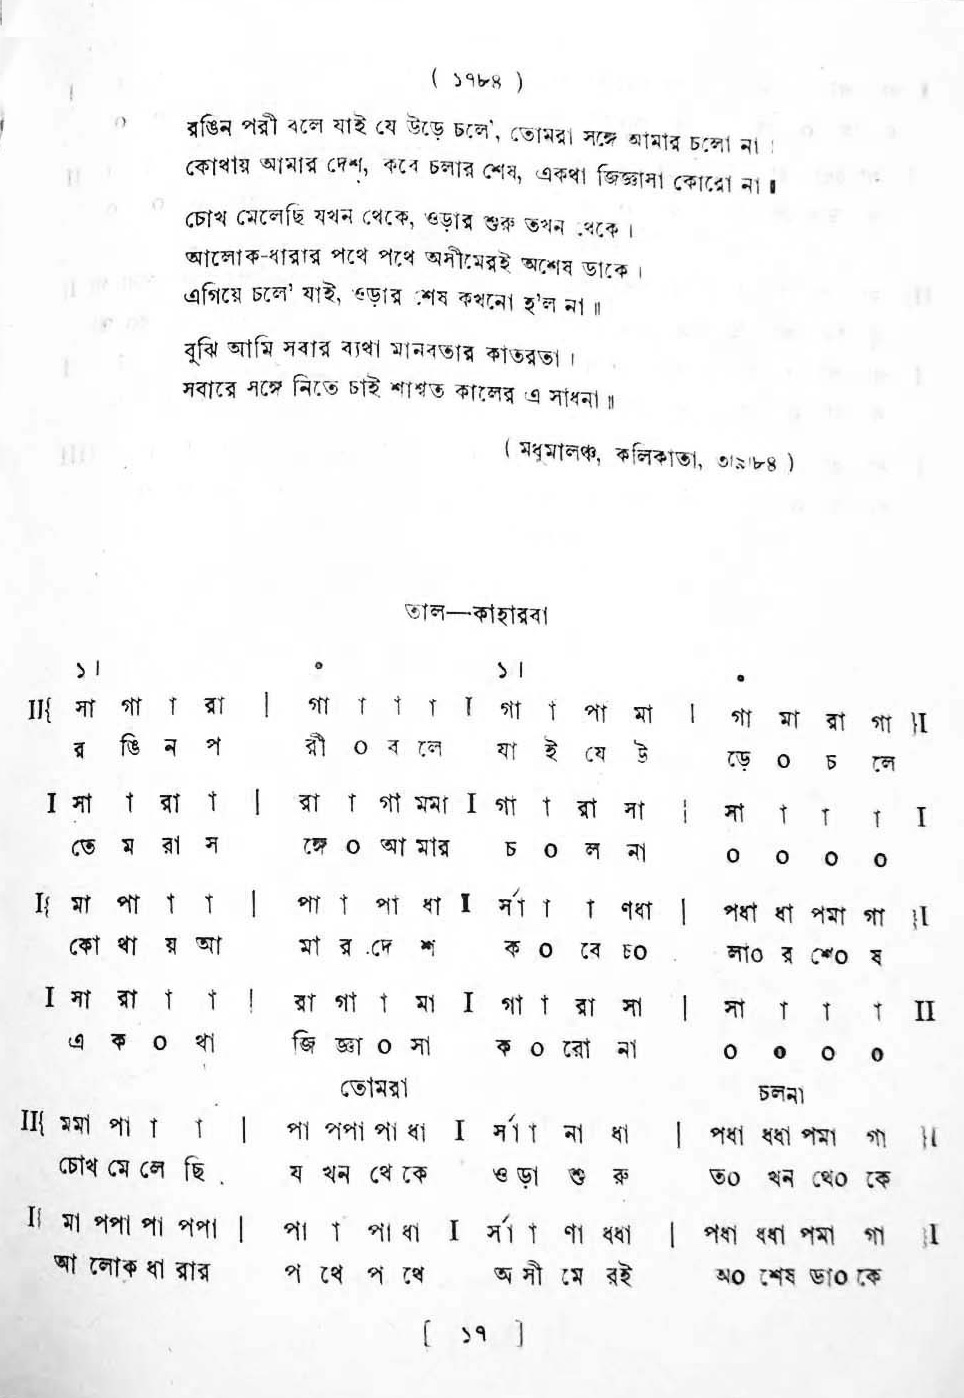 ( ১৭৮৪ )
রঙিন পরী বলে যাই যে উড়ে চলে', তোমরা সঙ্গে আমার চলো না ।
কোথায় আমার দেশ, কবে চলার শেষ, একথা জিজ্ঞাসা কোরো না ॥
চোখ মেলেছি যখন থেকে, ওড়ার শুরু তখন থেকে ।
আলোক-ধারার পথে পথে অসীমেরই অশেষ ডাকে ।
এগিয়ে চলে' যাই, ওড়ার শেষ কখনো হ'ল না ॥
বুঝি আমি সবার ব্যথা মানবতার কাতরতা ।
সবারে সঙ্গে নিতে চাই শাশ্বত কালের এ সাধনা ॥
( মধুমালঞ্চ, কলিকাতা, ৩।৯।৮৪ )
তাল—কাহারবা
১। ॰ ১। •
II{ সা গা া রা | গা া া া I গা া পা মা | গা মা রা গা }I
র ঙি ন প রী ০ ব লে যা ই যে উ ড়ে ০ চ লে
I সা া রা া | রা া গা মমা I গা া রা সা | সা া া া I
তে ম রা স ঙ্গে ০ আ মার চ ০ ল না ০ ০ ০ ০
I{ মা পা া া | পা া পা ধা I র্সা া া ণধা | পধা ধা পমা গা }I
কো থা য় আ মা র দে শ ক ০ বে চ০ লা০ র শে০ ষ
I সা রা া া | রা গা া মা I গা া রা সা | সা া া া II
এ ক ০ থা জি জ্ঞা ০ সা ক ০ রো না ০ ০ ০ ০
তোমরা চলনা
II{ মমা পা া া | পা পপা পা ধা I র্সা া না ধা | পধা ধধা পমা গা }I
চোখ মে লে ছি য খন থে কে ও ড়া শু রু ত০ খন থে০ কে
I{ মা পপা পা পপা | পা া পা ধা I র্সা া ণা ধধা | পধা ধধা পমা গা }I
আ লোক ধা রার প থে প থে অ সী মে রই অ০ শেষ ডা০ কে
[ ১৭ ]